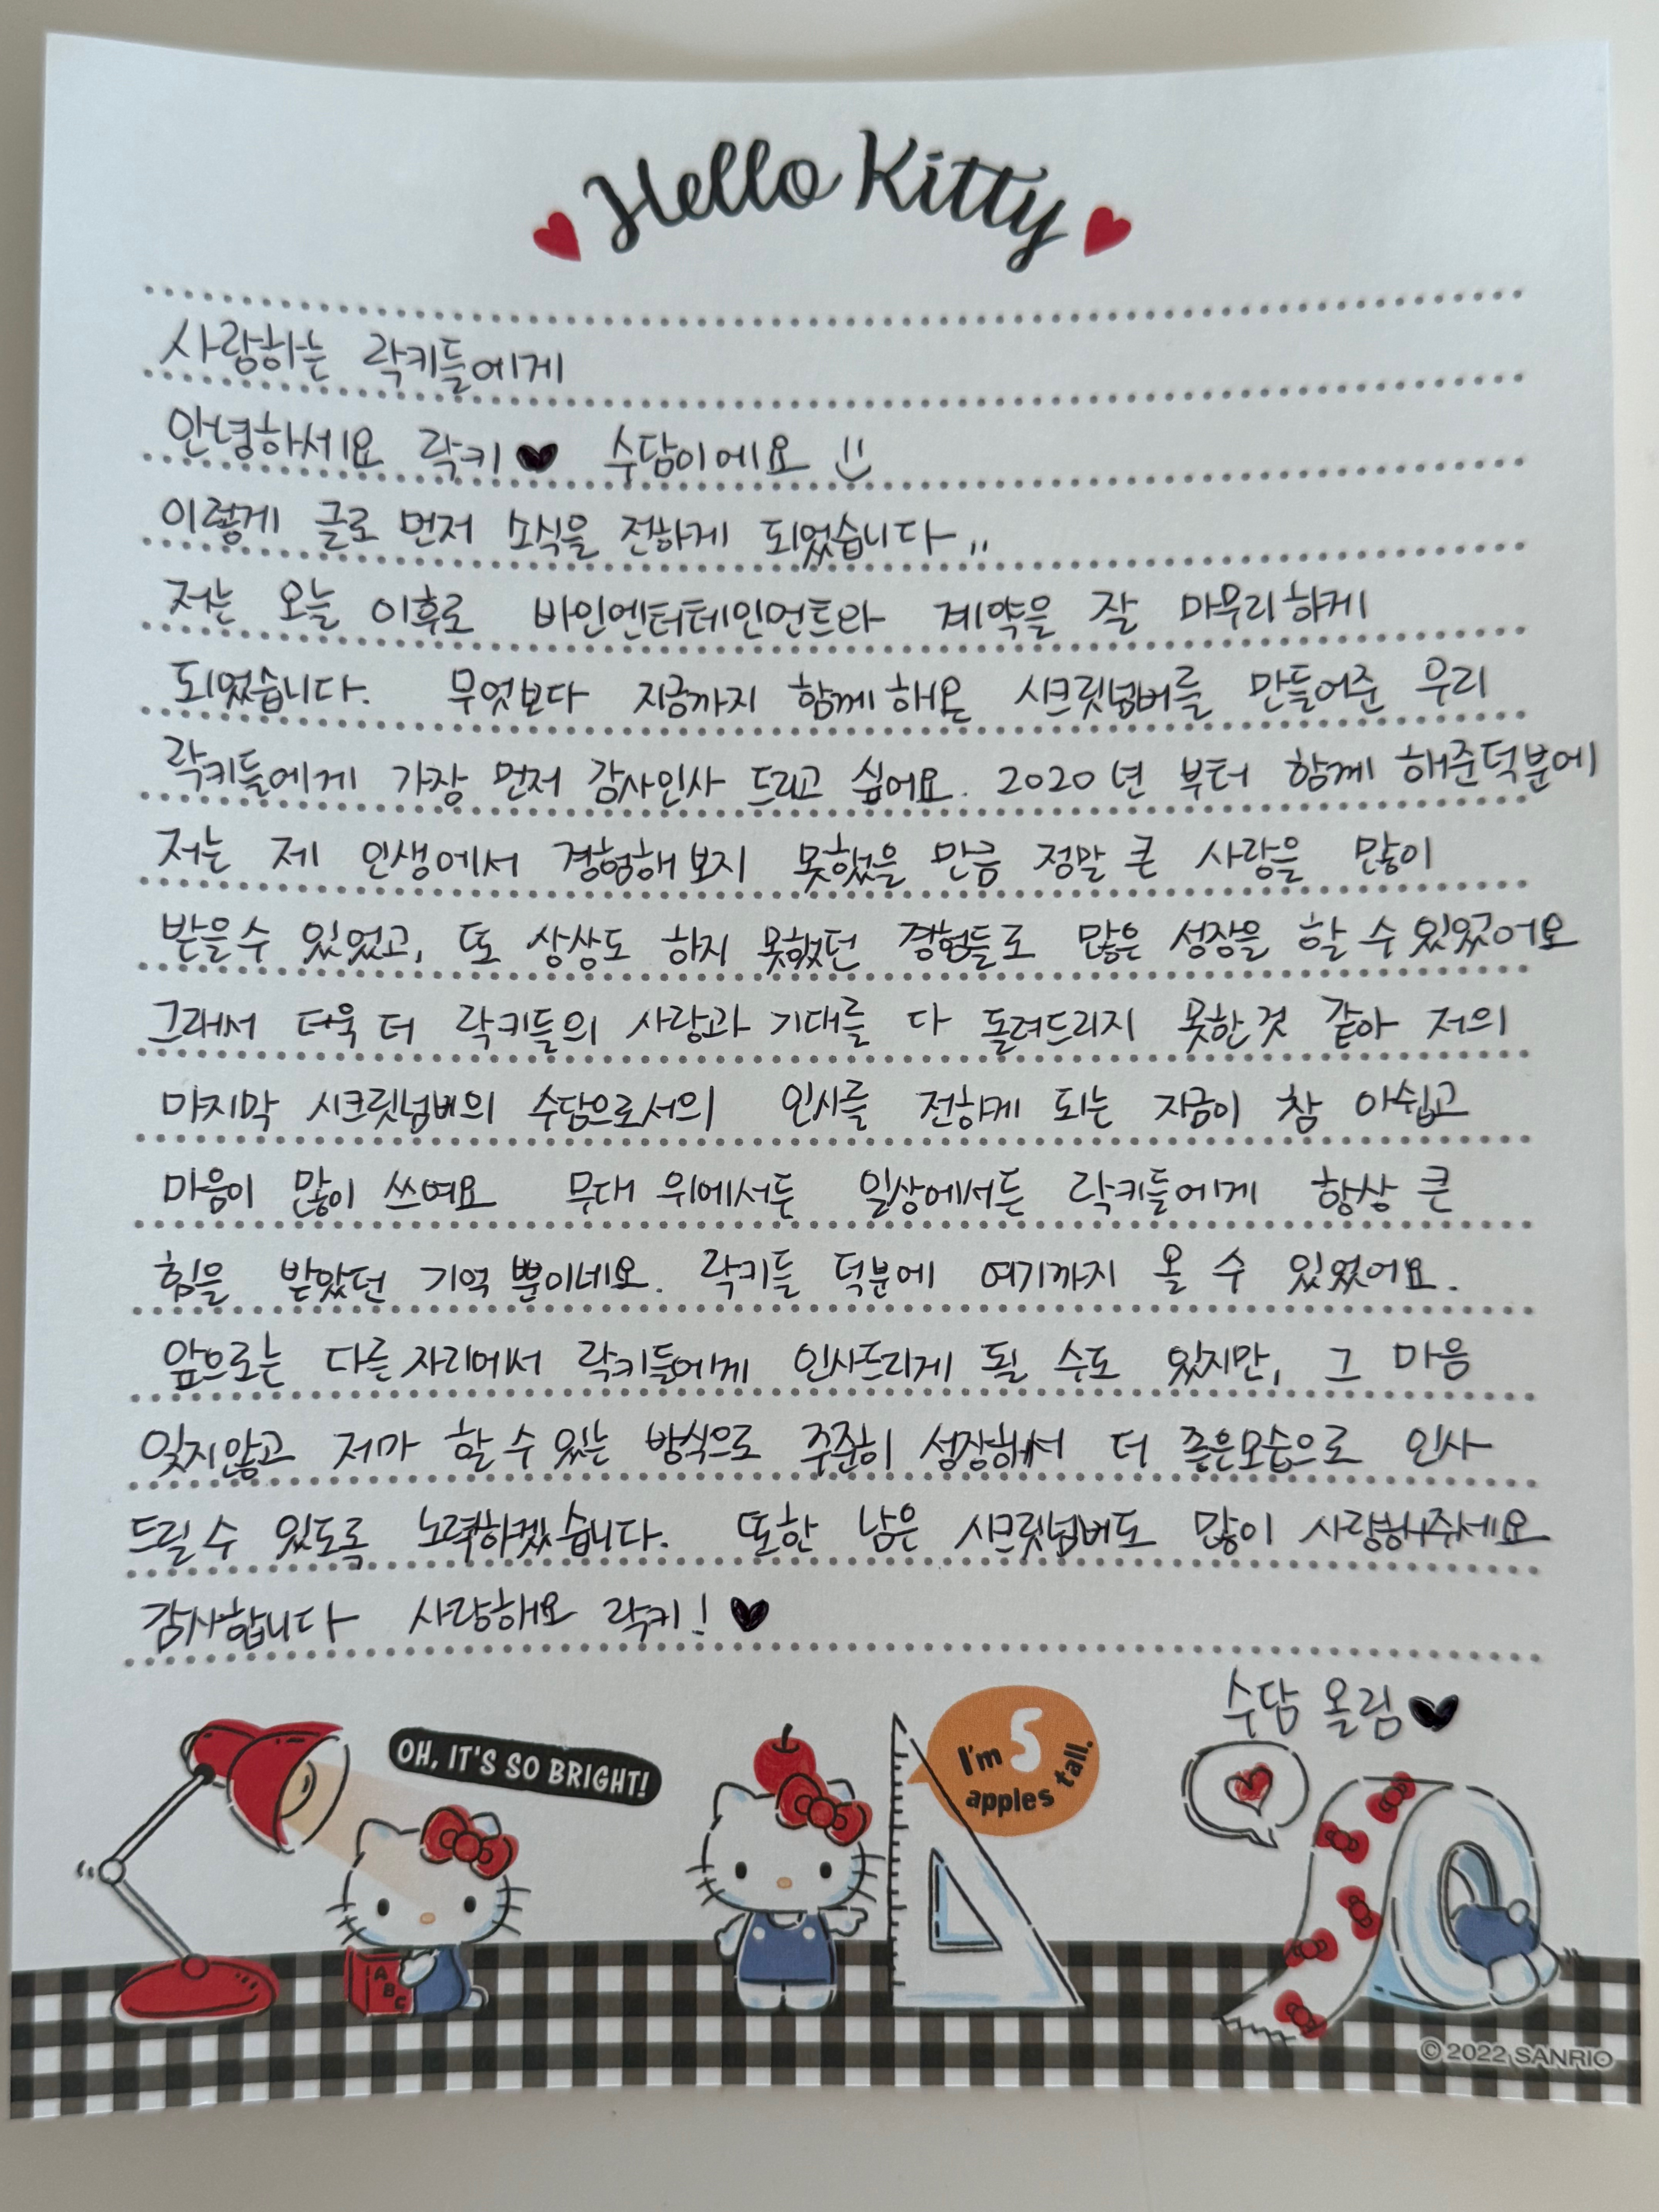 Hello Kitty
사랑하는 락키들에게
안녕하세요 락키♥ 수담이에요 :)
이렇게 글로 먼저 소식을 전하게 되었습니다..
저는 오늘 이후로 바인엔터테인먼트와 계약을 잘 마무리하게
되었습니다. 무엇보다 지금까지 함께해온 시크릿넘버를 만들어준 우리
락키들에게 가장 먼저 감사인사 드리고 싶어요. 2020년 부터 함께 해준덕분에
저는 제 인생에서 경험해보지 못했을 만큼 정말 큰 사랑을 많이
받을수 있었고, 또 상상도 하지 못했던 경험들로 많은 성장을 할 수 있었어요
그래서 더욱 더 락키들의 사랑과 기대를 다 돌려드리지 못한것 같아 저의
마지막 시크릿넘버의 수담으로서의 인사를 전하게 되는 지금이 참 아쉽고
마음이 많이 쓰여요 무대 위에서든 일상에서든 락키들에게 항상 큰
힘을 받았던 기억 뿐이네요. 락키들 덕분에 여기까지 올 수 있었어요.
앞으로는 다른 자리에서 락키들에게 인사드리게 될 수도 있지만, 그 마음
잊지않고 제가 할 수 있는 방식으로 꾸준히 성장해서 더 좋은모습으로 인사
드릴 수 있도록 노력하겠습니다. 또한 남은 시크릿넘버도 많이 사랑해주세요
감사합니다 사랑해요 락키! ♥
수담 올림♥
OH, IT'S SO BRIGHT!
I'm 5
apples tall.
A
B
C
© 2022 SANRIO